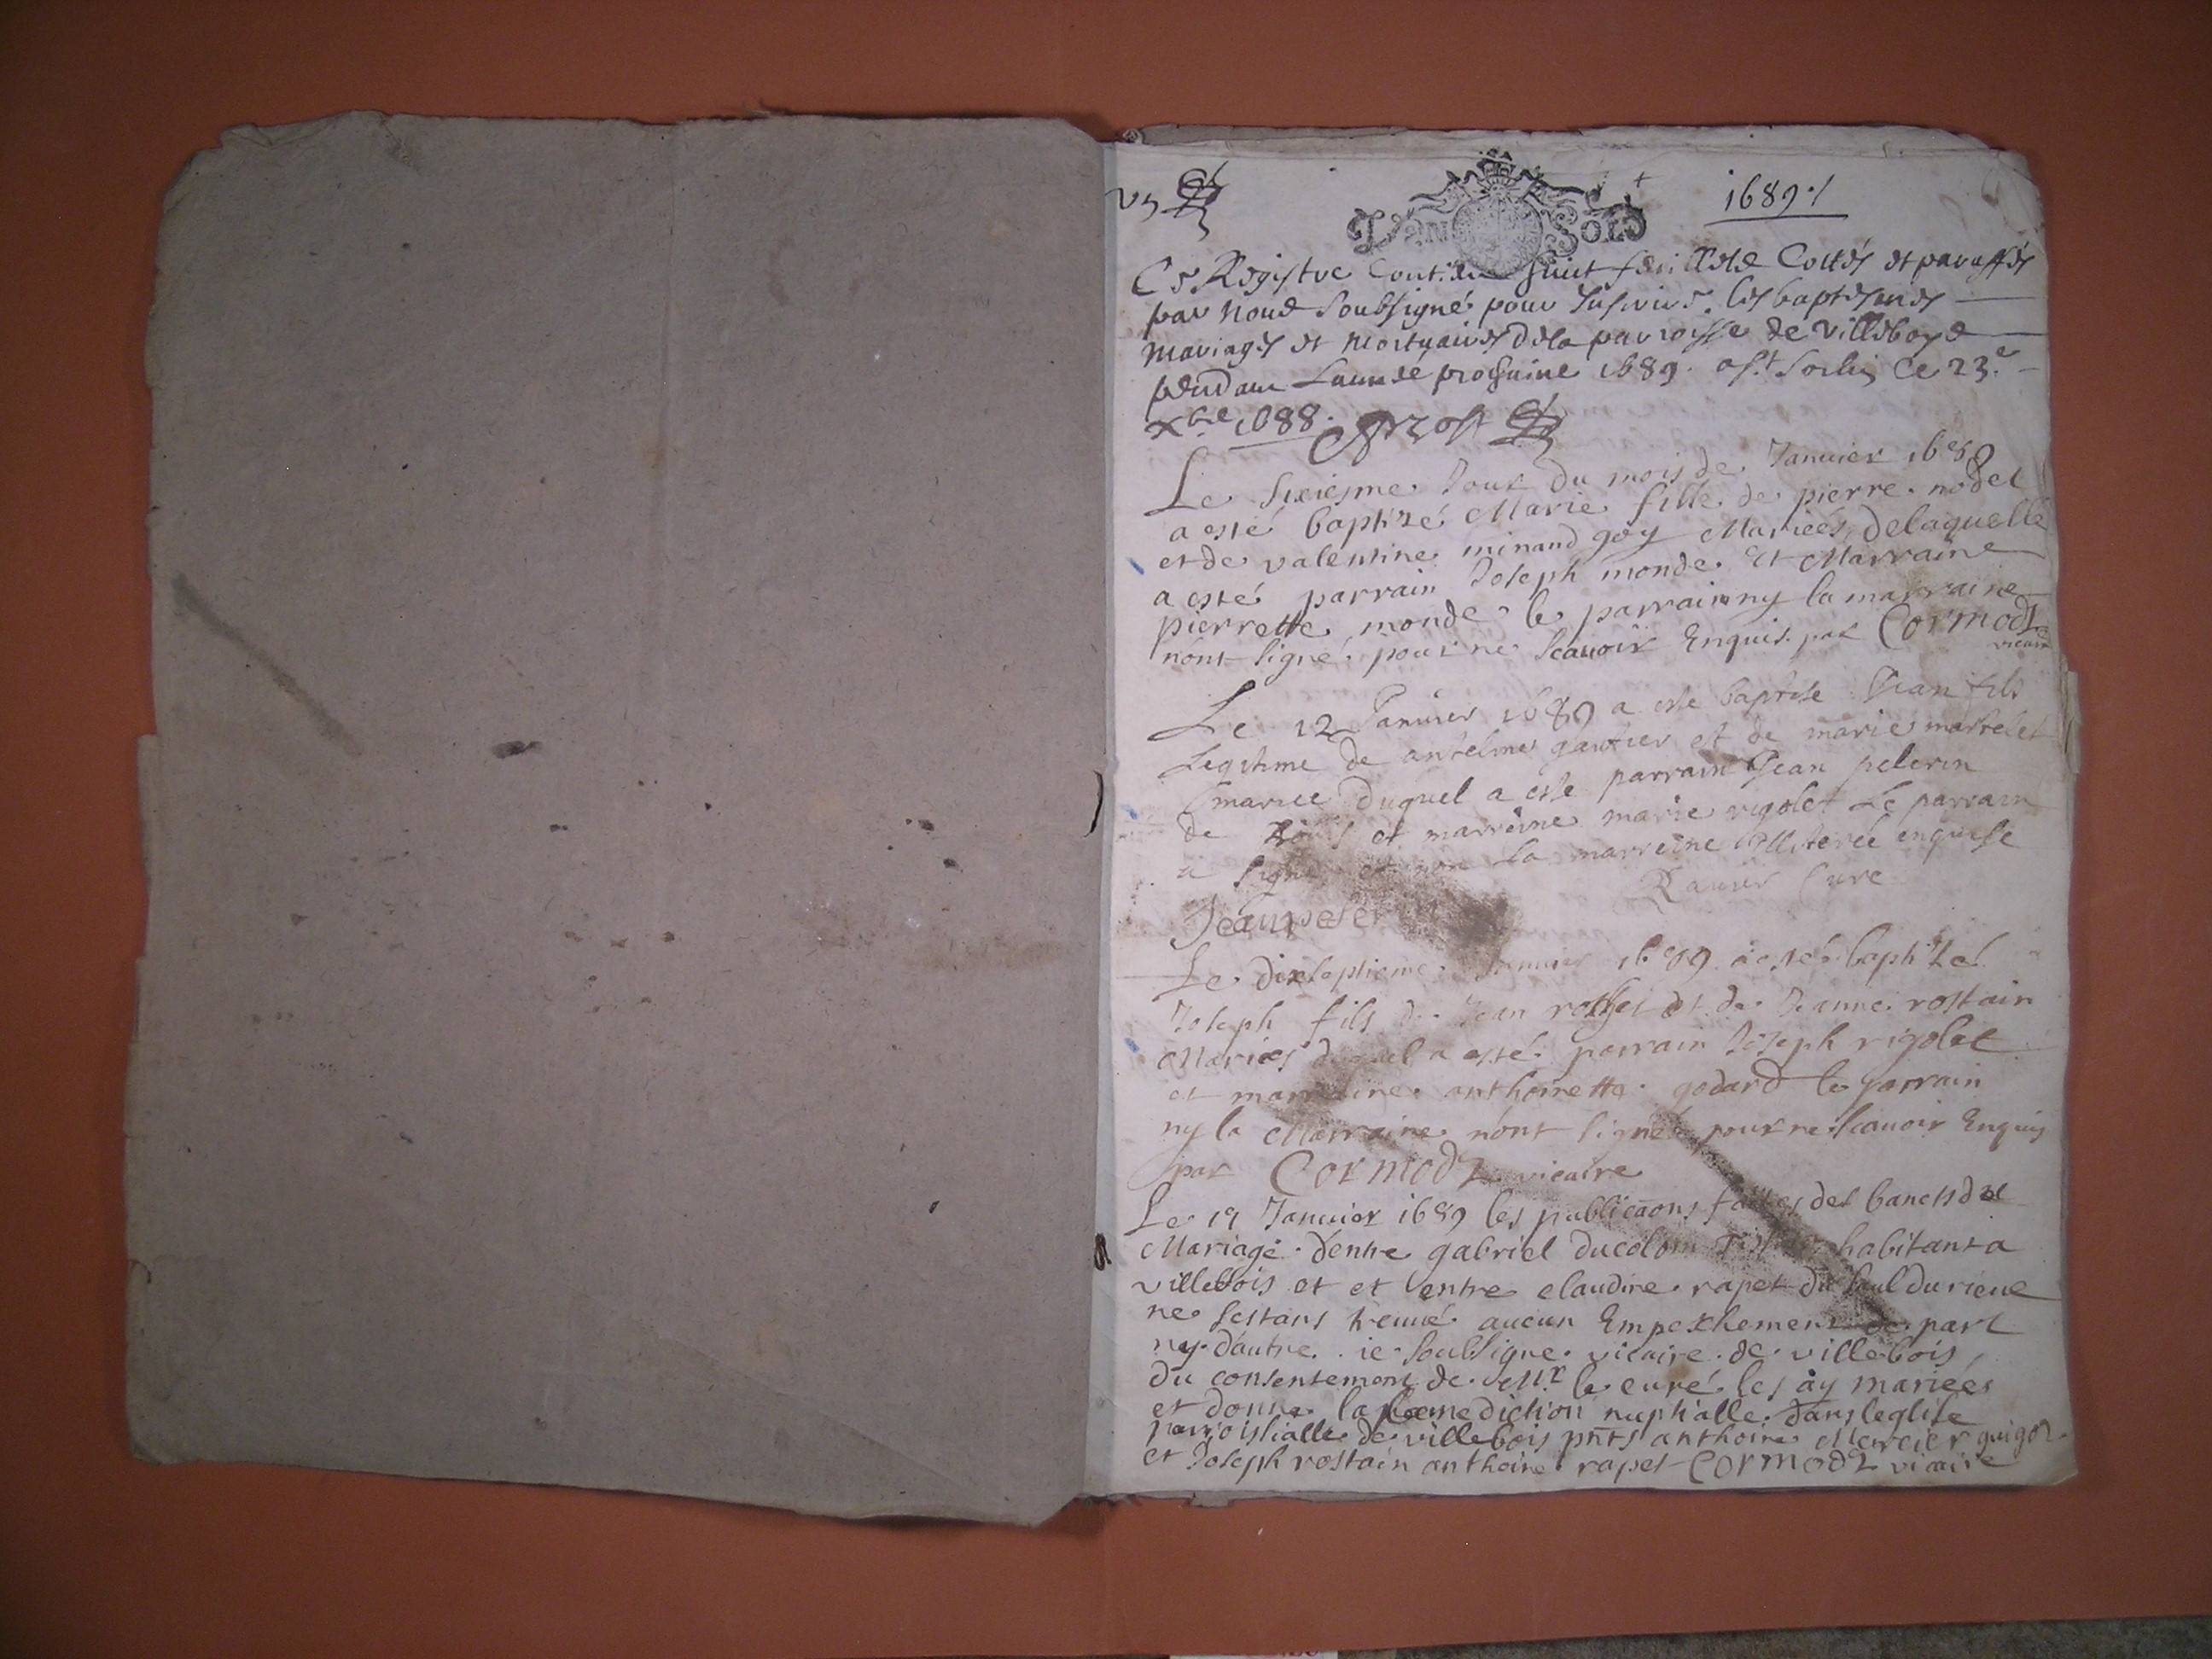 Vn
Van Sols
1689
Ce Registre Contient huict feuilletz Cottés et paraffés
par Nous Soubsigné pour Inscrire les baptesmes
Mariages et Mortuaires de la parroisse de Villeboys
pendant Lannee prochaine 1689. a St Sorlin ce 23e
xbre 1688.
Le sixiesme Jour du mois de Januier 1689
a esté baptizé Marie fille de pierre nodet
et de valentine minand goy Mariées, delaquelle
a esté parrain Joseph monde. Et Marraine
pierrette monde le parrain ny la marraine
nont signé pour ne scauoir Enquis par Cormod
vicaire
Le 12 Januier 1689 a este baptise Jean fils
Legitime de antelme gautier et de marie martelet
marice duquel a este parrain Jean pelerin
de et marreine marie rigolet Le parrain
a signé et non La marreine illiteree enquise
Rauier Cure
Jean peler
Le dixseptieme Januier 1689 a esté baptizé
Joseph fils de Jean rosset et de Jeanne rostain
Mariées duquel a esté parrain Joseph rigolet
et marraine anthoinette godard le parrain
ny la Marraine nont signé pour ne scauoir Enquis
par Cormod vicaire
Le 19 Januier 1689 les publicaons faittes des bancs de
Mariage dentre gabriel ducolom habitant a
villebois et et entre claudine rapet du
ne sestant treuué aucun Empeschement de part
ny dautre ie soubsigné vicaire de villebois
du consentement de le curé les ay mariées
et donne la benediction nuptialle dans leglise
parroissialle de villebois pnts anthoine Mercier guigo
et Joseph rostain anthoine rapet Cormod vicaire